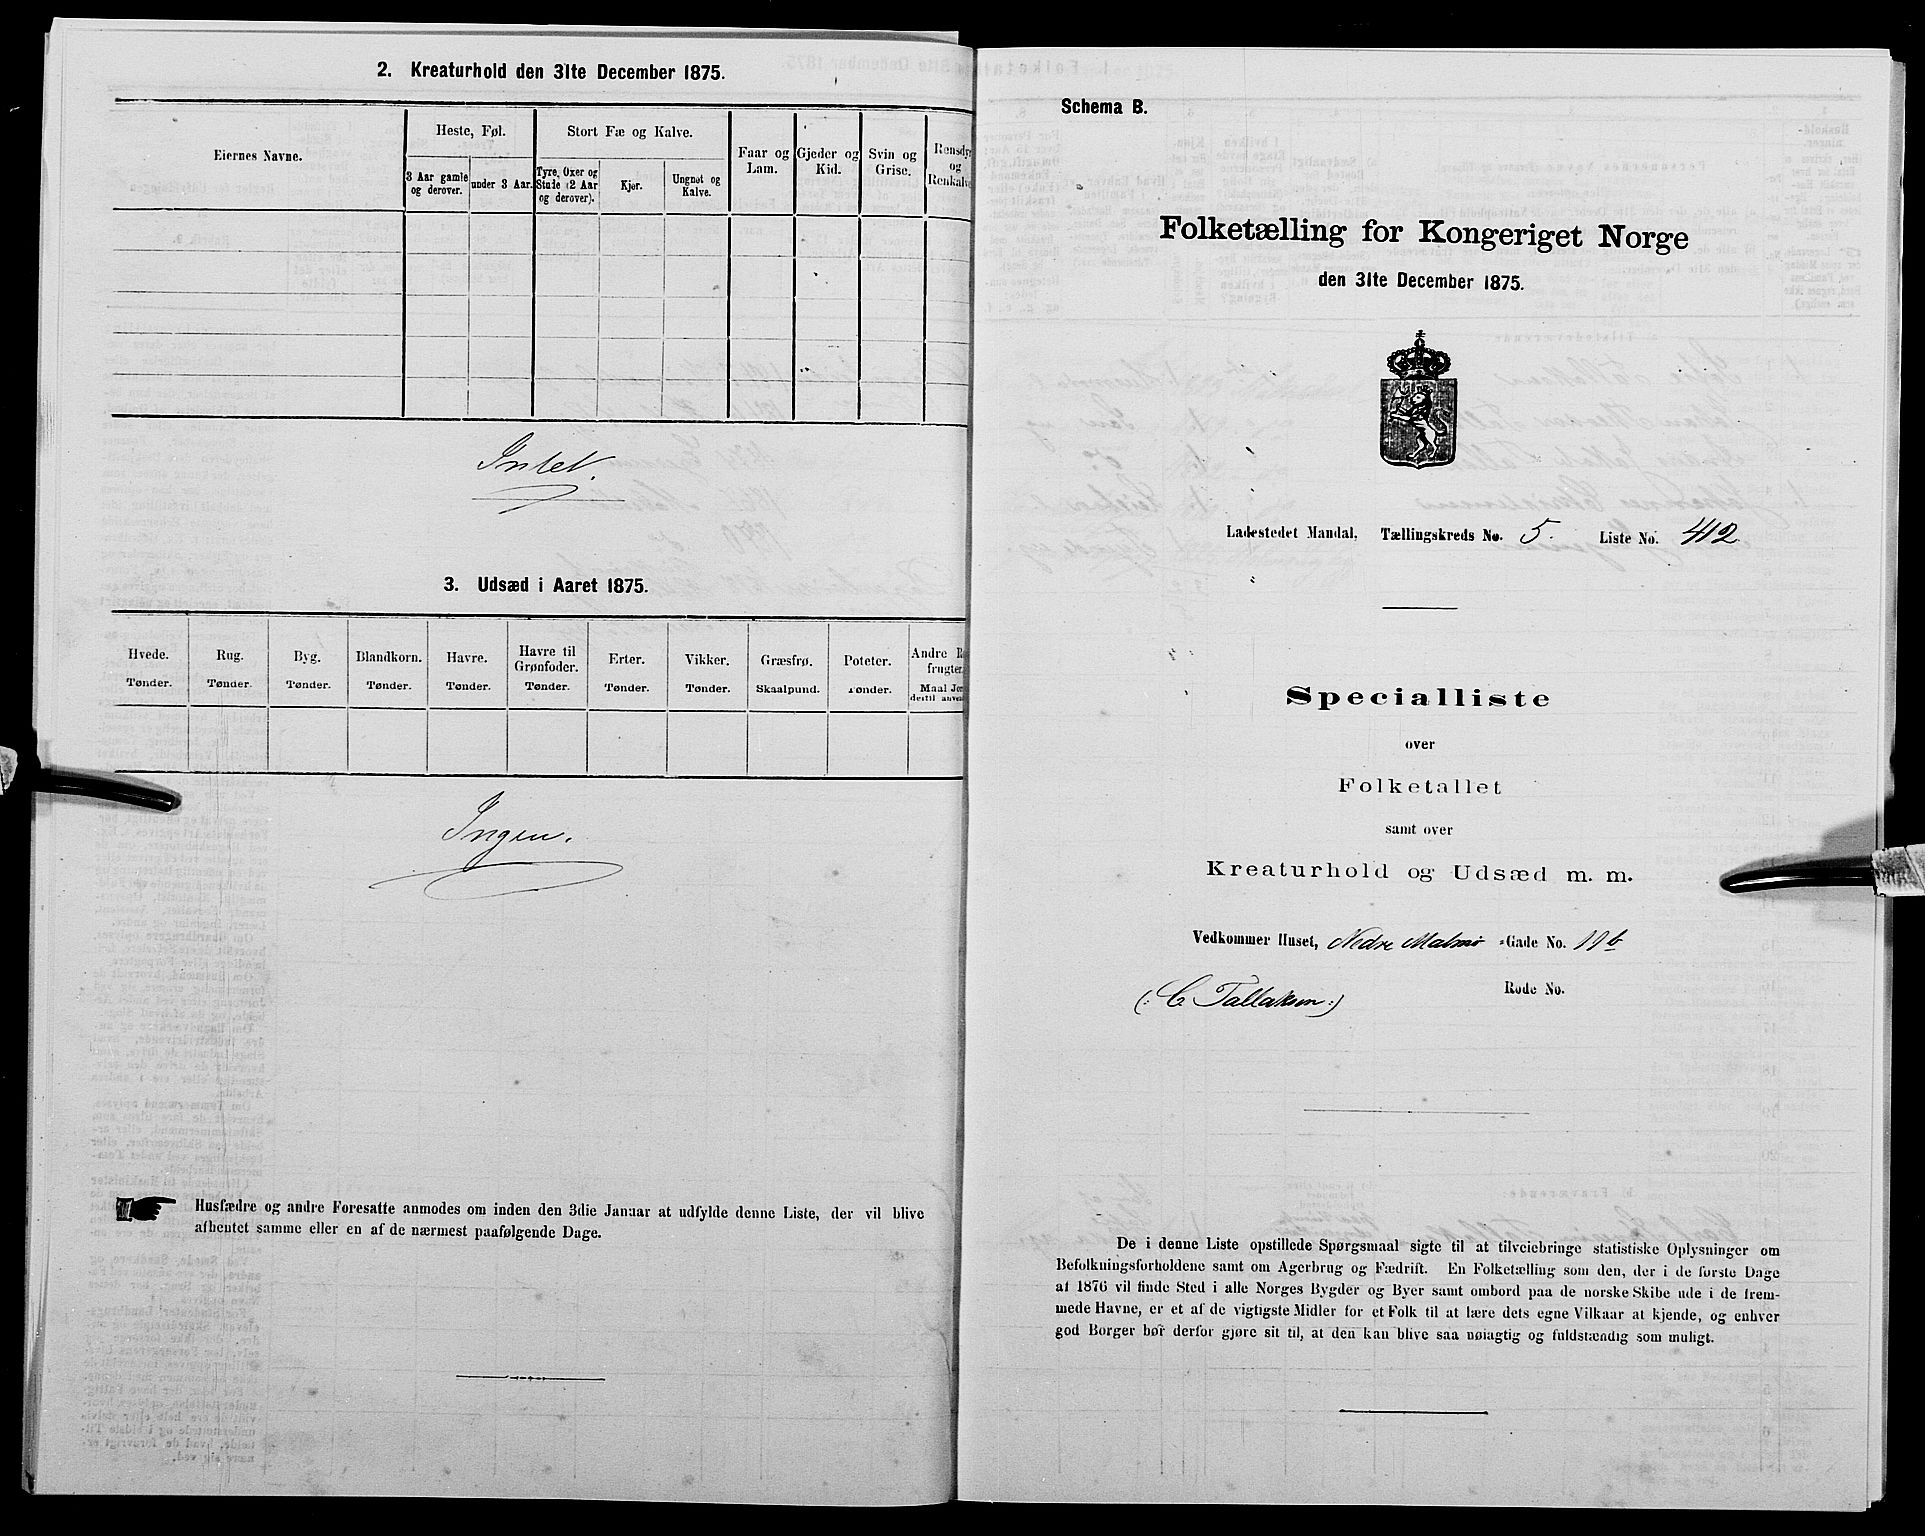 2. Kreaturhold den 31te December 1875.
Eiernes Navne.
Heste, Føl.
3 Aar gamle og derover.
under 3 Aar.
Stort Fæ og Kalve.
Tyre, Oxer og Stude (2 Aar og derover).
Kjør.
Ungnøt og Kalve.
Faar og Lam.
Gjeder og Kid.
Svin og Grise.
Rensdyr og Renkalve
Intet.
3. Udsæd i Aaret 1875.
Hvede. Rug. Byg. Blandkorn. Havre. Havre til Grønfoder. Erter. Vikker. Græsfrø. Poteter. Andre R frugter.
Tønder. Tønder. Tønder. Tønder. Tønder. Tønder. Tønder. Tønder. Skaalpund. Tønder. Maal Jor dertil anven
Ingen.
Husfædre og andre Foresatte anmodes om inden den 3die Januar at udfylde denne Liste, der vil blive
afhentet samme eller en af de nærmest paafølgende Dage.
Schema B.
Folketælling for Kongeriget Norge
den 31te December 1875.
Ladestedet Mandal, Tællingskreds No. 5. Liste No. 412
Specialliste
over
Folketallet
samt over
Kreaturhold og Udsæd m. m.
Vedkommer Huset, Nedre Malmø -Gade No. 19b
(: C Tallaksen :)
Rode No.
De i denne Liste opstillede Spørgsmaal sigte til at tilveiebringe statistiske Oplysninger om
Befolkningsforholdene samt om Agerbrug og Fædrift. En Folketælling som den, der i de første Dage
af 1876 vil finde Sted i alle Norges Bygder og Byer samt ombord paa de norske Skibe ude i de frem-
mede Havne, er et af de vigtigste Midler for et Folk til at lære dets egne Vilkaar at kjende, og enhver
god Borger bør derfor gjøre sit til, at den kan blive saa nøiagtig og fuldstændig som muligt.